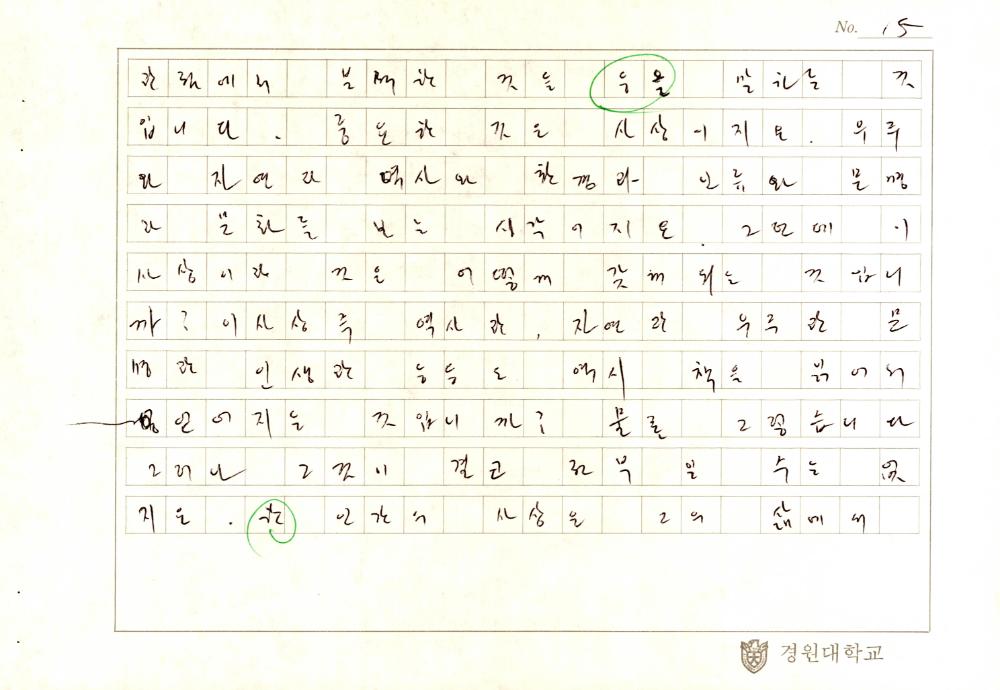 No. 15
관점에서 분석한 것을 말하는 것
입니다. 중요한 것은 사상이지요. 우주
와 자연과 역사와 환경과 인류와 문명
과 문화를 보는 시각이지요. 그런데 이
사상이란 것은 어떻게 갖게 되는 것입니
까? 이 사상 즉 역사관, 자연관 우주관 문
명관 인생관 등등도 역시 책을 읽어서
얻어지는 것입니까? 물론 그렇습니다
그러나 그것이 결코 전부일 수는 없
지요. 한 인간의 사상은 그의 삶에서
경원대학교